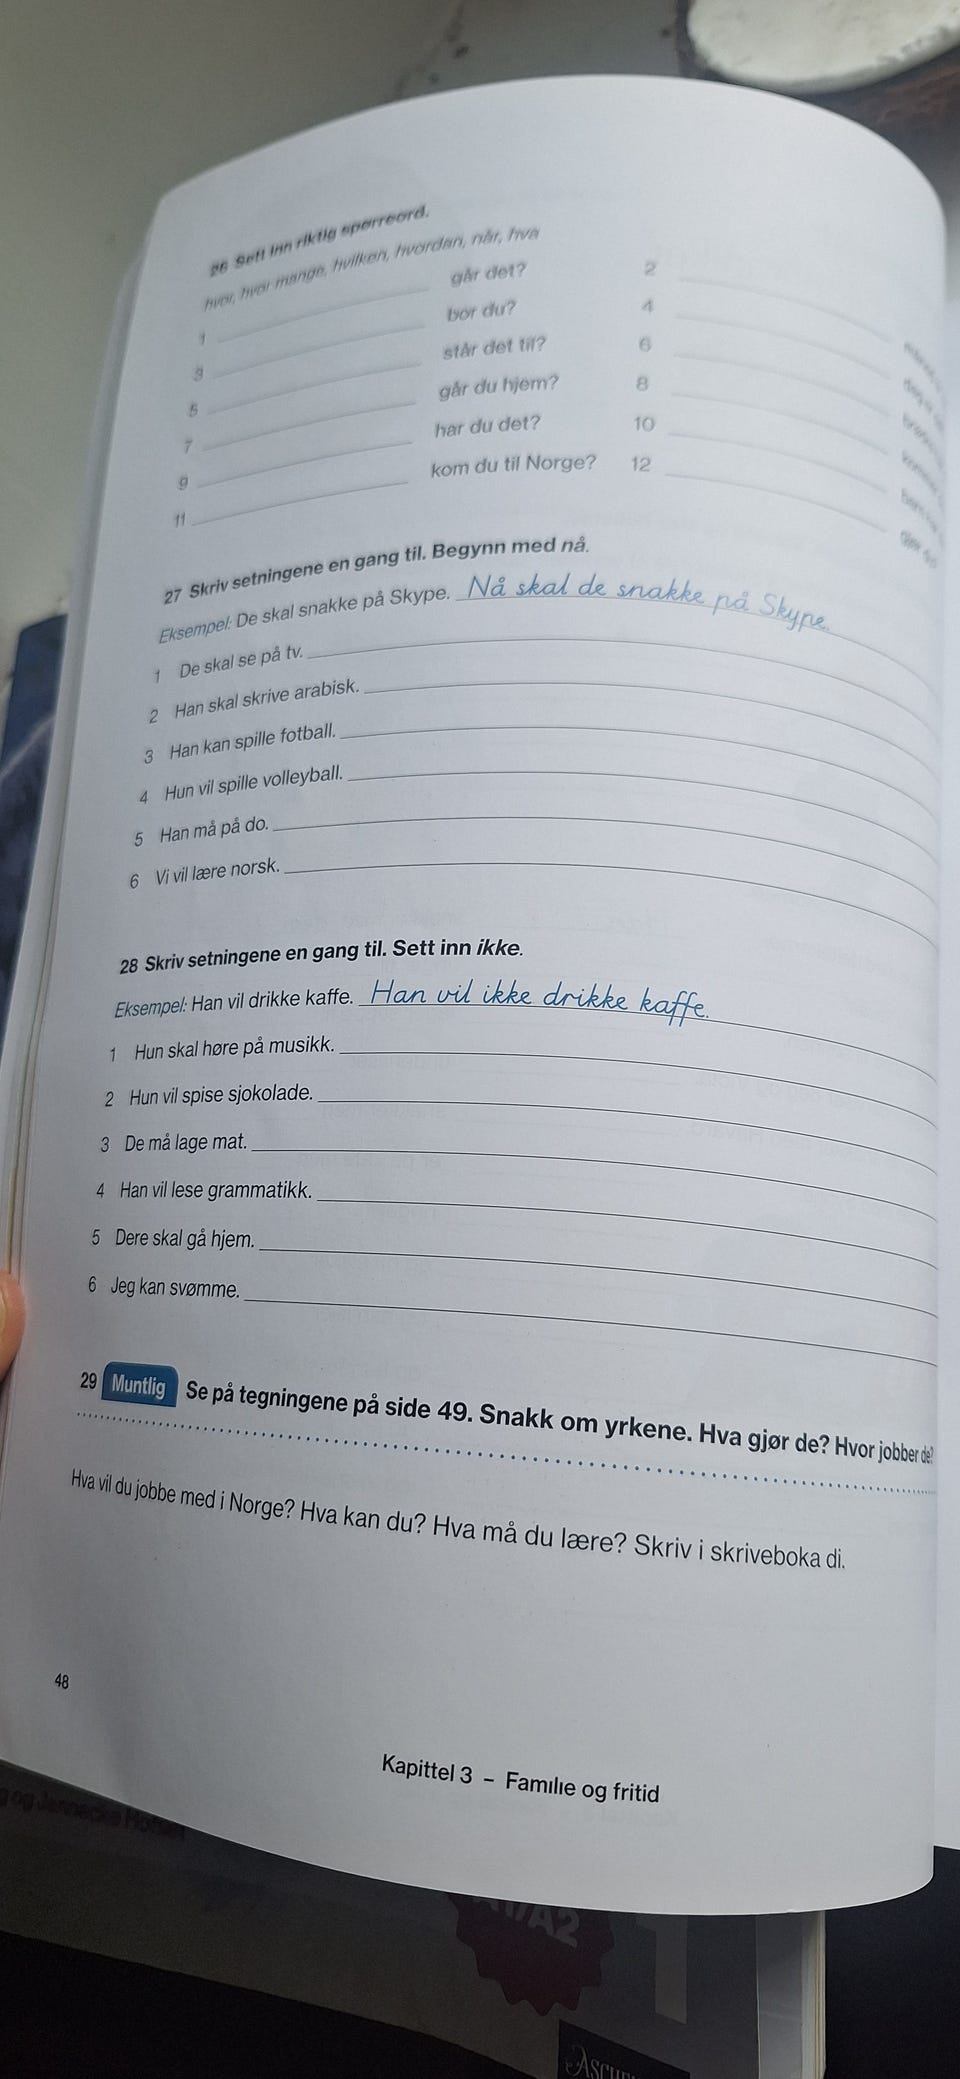 26 Sett inn riktig spørreord.
hvor, hvor mange, hvilken, hvordan, når, hva
1 går det? 2
3 bor du? 4
5 står det til? 6
7 går du hjem? 8
9 har du det? 10
11 kom du til Norge? 12
27 Skriv setningene en gang til. Begynn med nå.
Eksempel: De skal snakke på Skype. Nå skal de snakke på Skype.
1 De skal se på tv.
2 Han skal skrive arabisk.
3 Han kan spille fotball.
4 Hun vil spille volleyball.
5 Han må på do.
6 Vi vil lære norsk.
28 Skriv setningene en gang til. Sett inn ikke.
Eksempel: Han vil drikke kaffe. Han vil ikke drikke kaffe.
1 Hun skal høre på musikk.
2 Hun vil spise sjokolade.
3 De må lage mat.
4 Han vil lese grammatikk.
5 Dere skal gå hjem.
6 Jeg kan svømme.
29 Muntlig Se på tegningene på side 49. Snakk om yrkene. Hva gjør de? Hvor jobber de?
Hva vil du jobbe med i Norge? Hva kan du? Hva må du lære? Skriv i skriveboka di.
48
Kapittel 3 – Familie og fritid